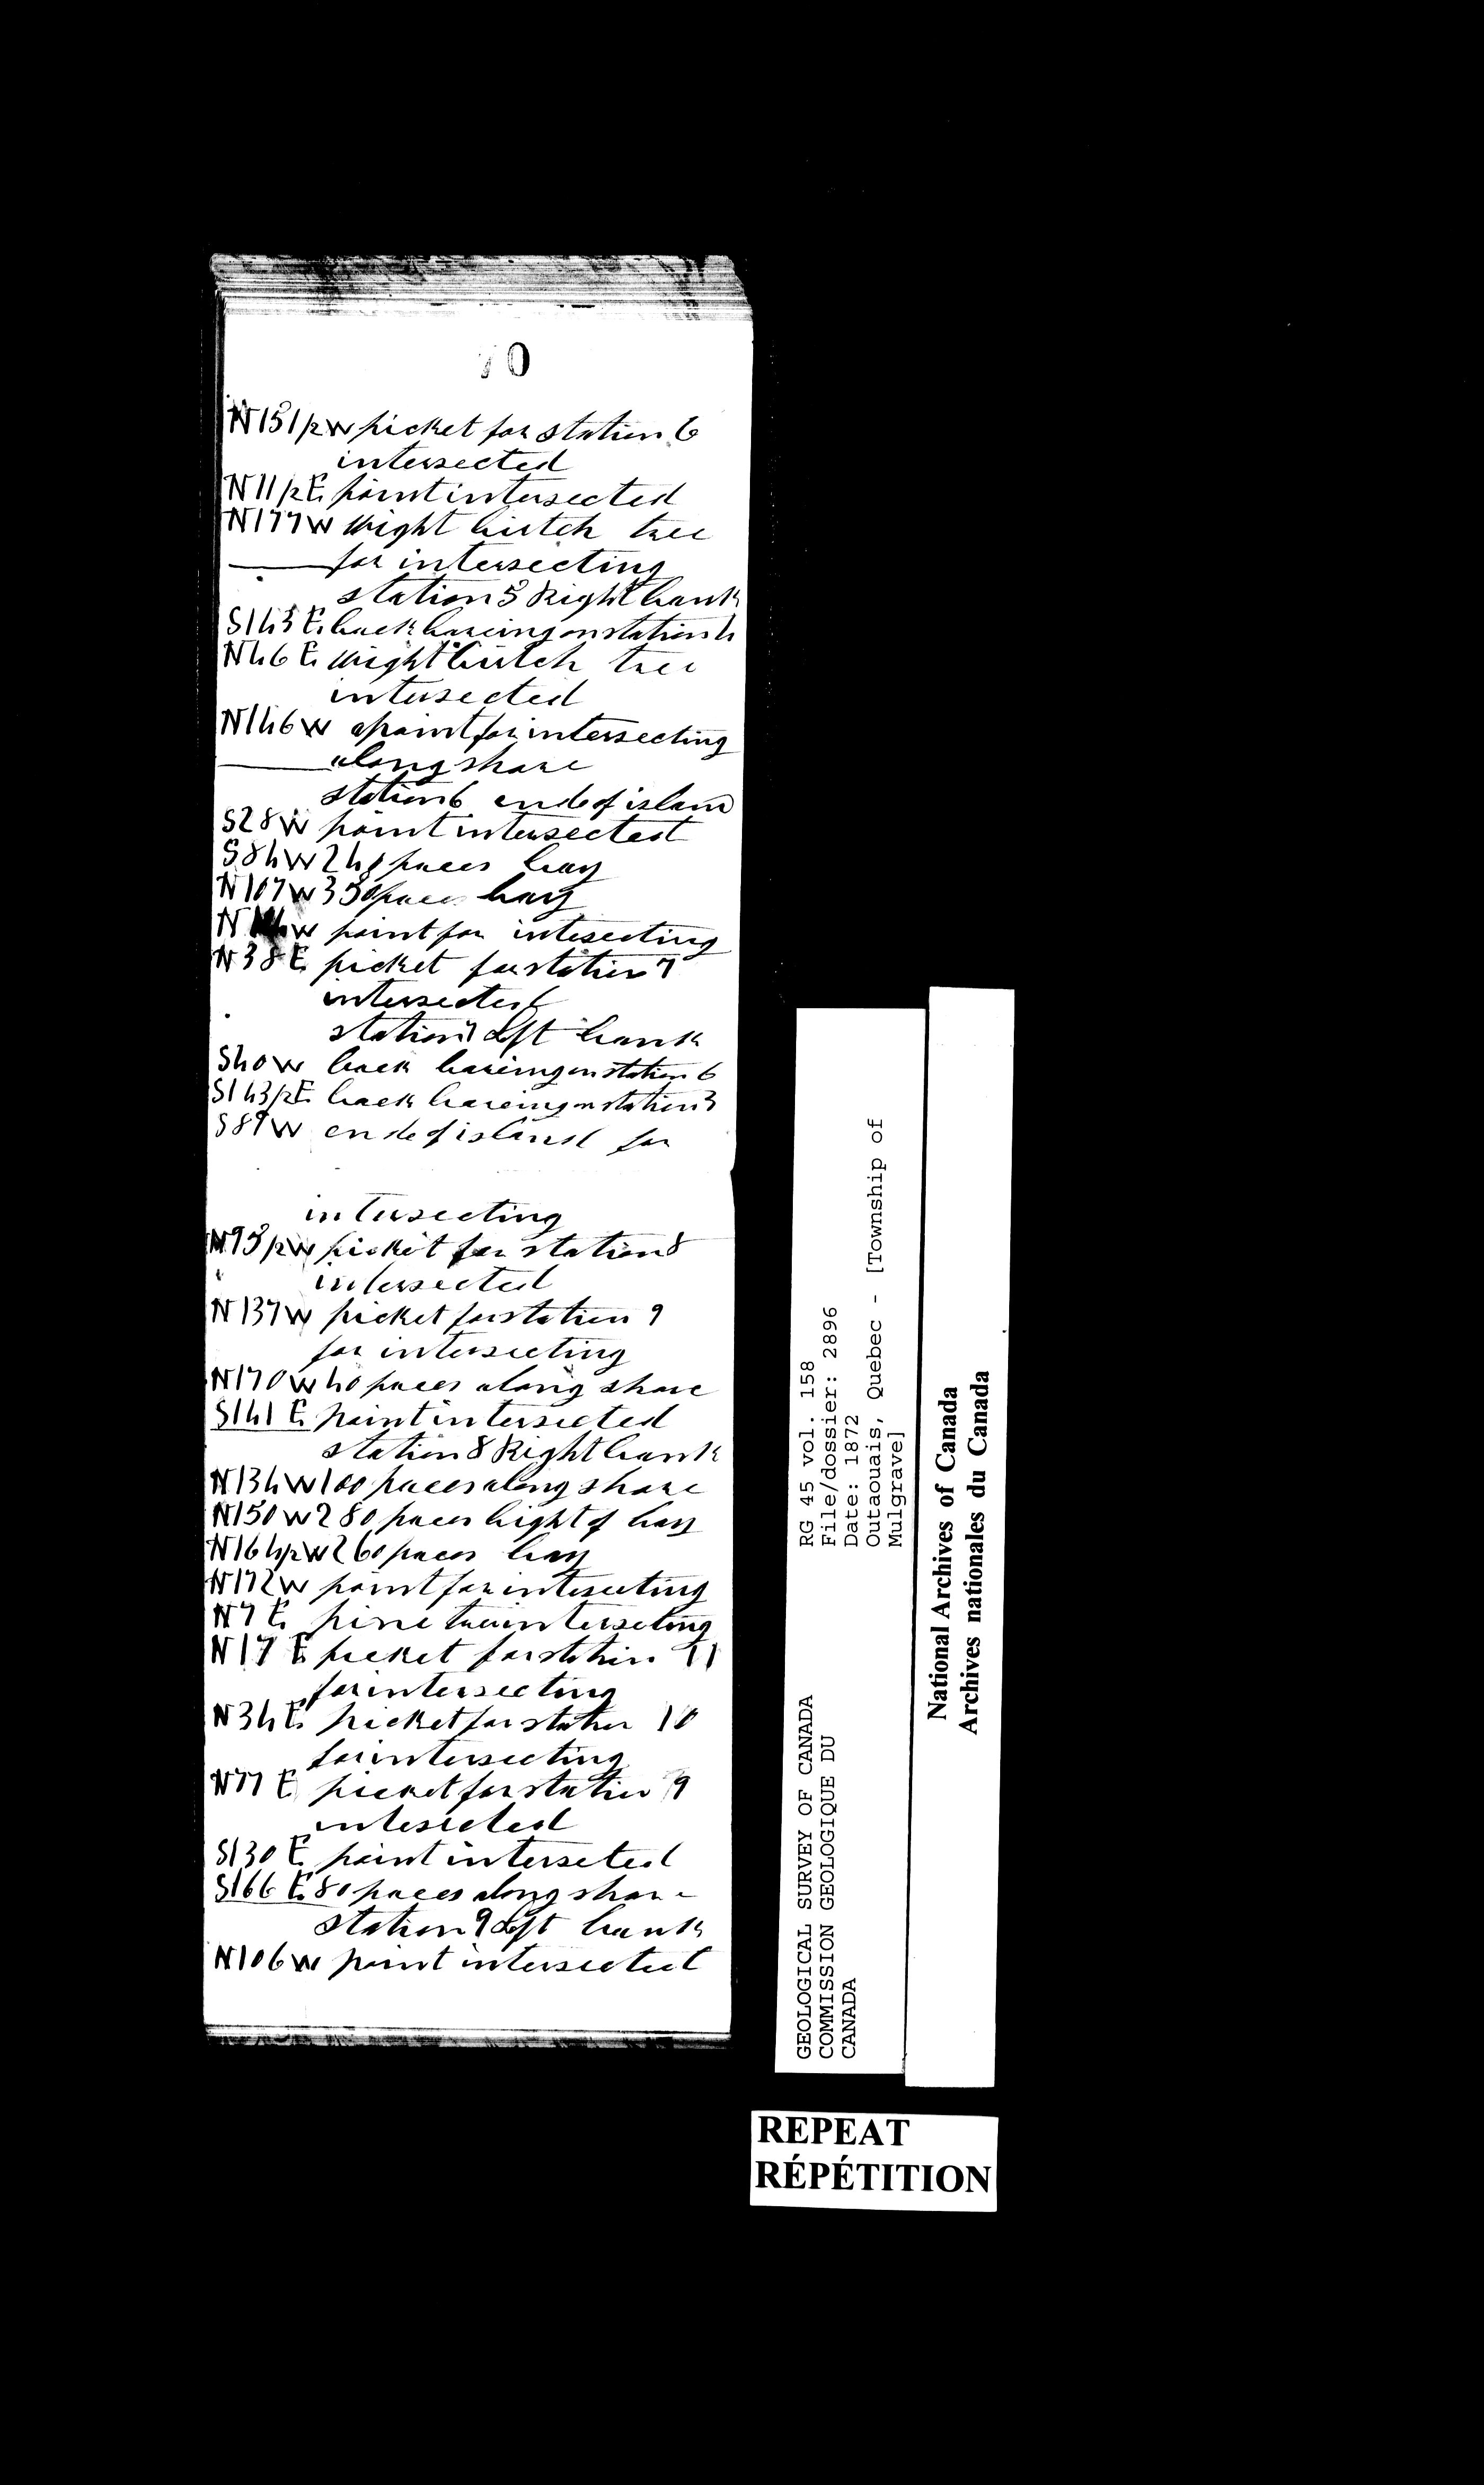 70
N151½W picket for station 6
intersected
N11½E point intersected
N177W wright birtch tree
for intersecting
station 5 Right bank
S145E back bareing on station 4
N46E wright birtch tree
intersected
N146W a point for intersecting
along shore
station 6 ende of island
S28W point intersected
S84W 240 paces bay
N107W 350 paces bay
N W point for intesecting
N38E picket for station 7
intersected
station 7 Left bank
S40W back bareing on station 6
S143½E back bareing on station 3
S89W ende of island for
intersecting
N95½W picket for station 8
intersected
N137W picket for station 9
for intersecting
N170W 40 paces along shore
S141E point intersected
station 8 Right bank
N134W 100 paces along shore
N150W 280 paces hight of bay
N164½W 260 paces bay
N172W point for intesecting
N7E pine tree intersecting
N17E picket for station 11
for intersecting
N34E picket for station 10
for intersecting
N77E picket for station 9
intersected
S130E point intersected
S166E 80 paces along shore
station 9 Left bank
N106W point intersected
RG 45 vol. 158
File/dossier: 2896
Date: 1872
Outaouais, Quebec - [Township of
Mulgrave]
GEOLOGICAL SURVEY OF CANADA
COMMISSION GEOLOGIQUE DU
CANADA
National Archives of Canada
Archives nationales du Canada
REPEAT
RÉPÉTITION